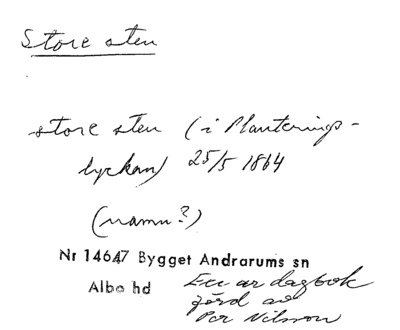 Store sten
store sten (i Planterings-
lyckan) 25/5 1864
(namn?)
Nr 14647 Bygget Andrarums sn
Albo hd
dagbok
förd av
Per Nilsson